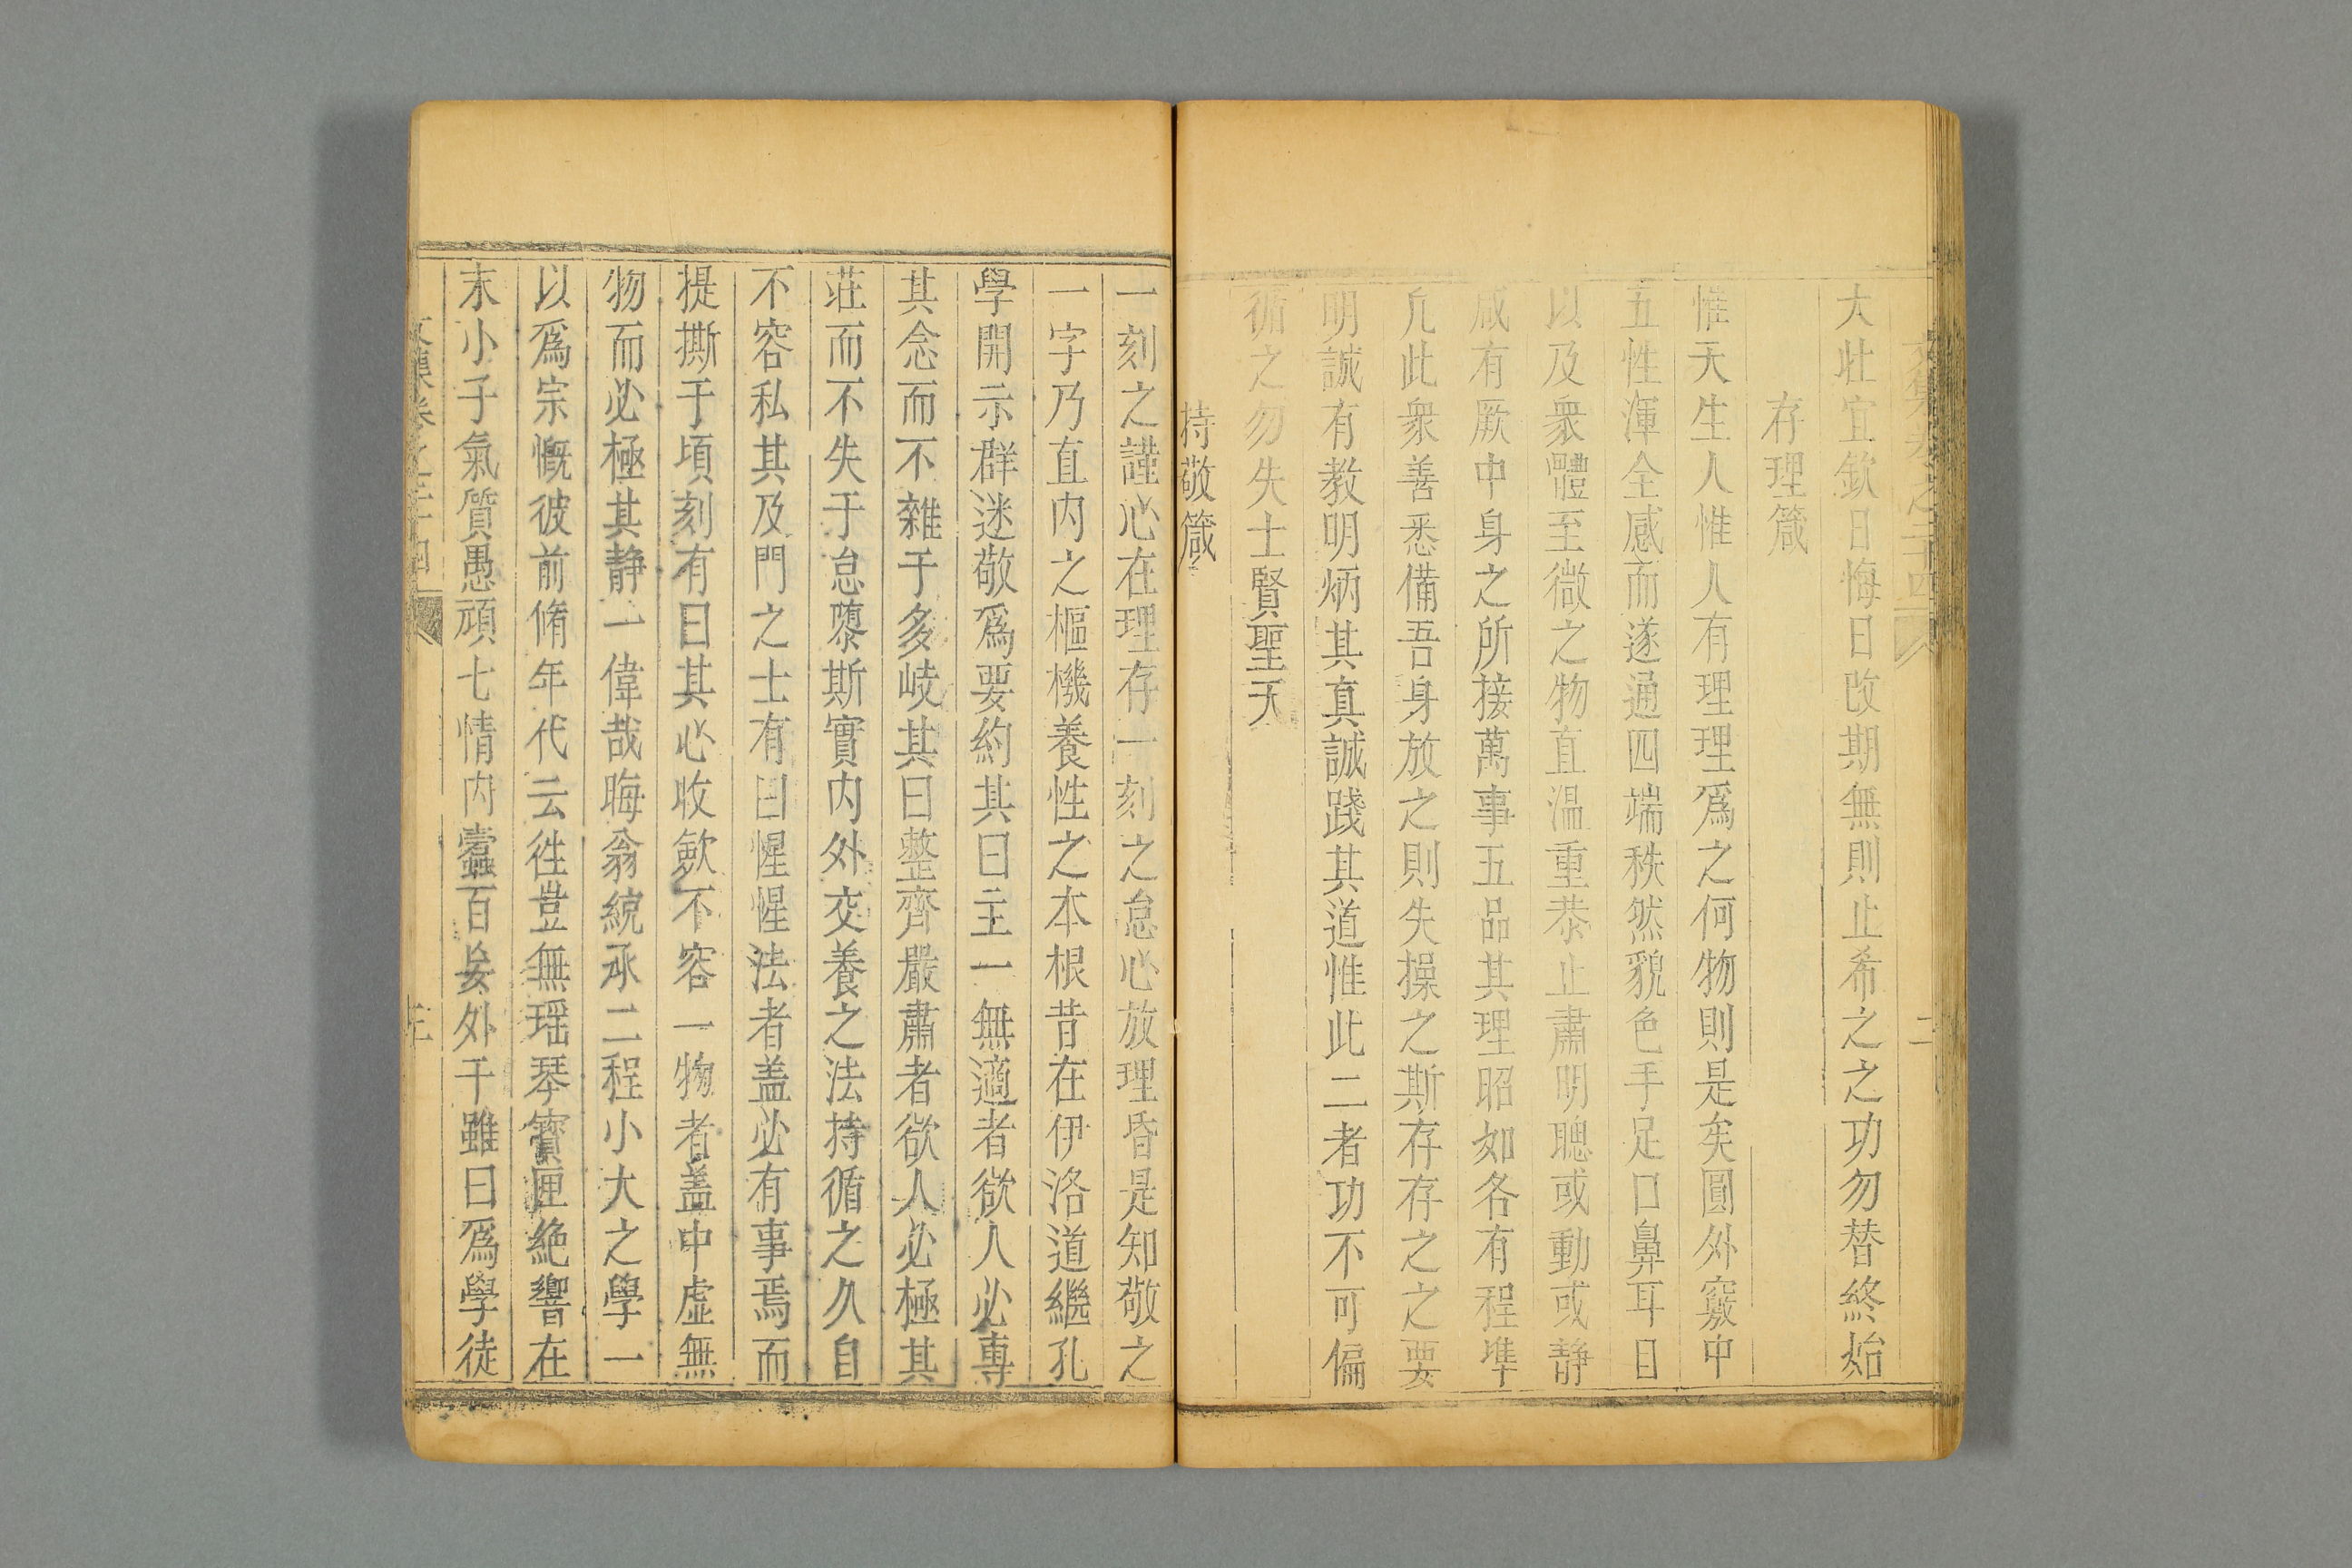 文集卷之二十四
二
大壯宜欽日悔日改期無則止希之之功勿替終始
存理箴
惟天生人惟人有理理爲之何物則是矣圓外竅中
五性渾全感而遂通四端秩然貌色手足口鼻耳目
以及衆體至微之物直温重恭止肅明聰或動或静
咸有厥中身之所接萬事五品其理昭如各有程準
凢此衆善悉備吾身放之則失操之斯存存之之要
明誠有教明炳其真誠踐其道惟此二者功不可偏
循之勿失士賢聖天
持敬箴
一刻之謹心在理存一刻之怠心放理昏是知敬之
一字乃直内之樞機養性之本根昔在伊洛道繼孔
學開示群迷敬爲要約其曰主一無適者欲人必專
其念而不雜于多岐其曰整齊嚴肅者欲人必極其
莊而不失于怠隳斯實内外交養之法持循之久自
不容私其及門之士有曰惺惺法者盖必有事焉而
提撕于頃刻有曰其心收歛不容一物者盖中虚無
物而必極其静一偉哉晦翁統承二程小大之學一
以爲宗慨彼前脩年代云徃豈無瑶琴寳匣絶響在
末小子氣質愚頑七情内蠧百妄外干雖曰爲學徒
文集卷之二十四
三